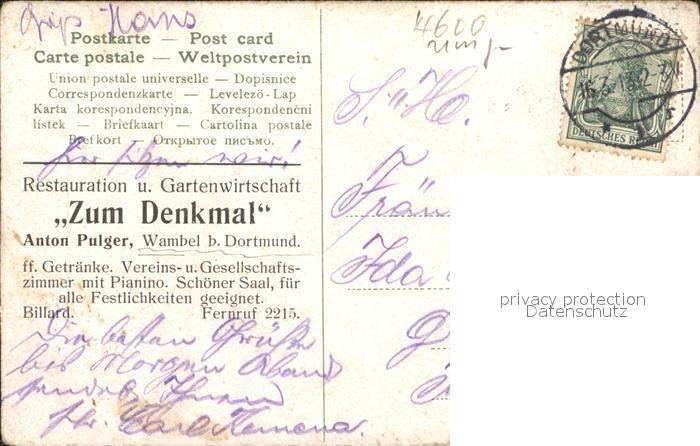 Hans
Postkarte — Post card
Carte postale — Weltpostverein
Union postale universelle — Dopisnice
Correspondenzkarte — Levelező-Lap
Karta korespondencyjna. Korespondenční
lístek — Briefkaart — Cartolina postale
Brefkort — Открытое письмо.
hier wir!
Restauration u. Gartenwirtschaft
„Zum Denkmal“
Anton Pulger, Wambel b. Dortmund.
ff. Getränke. Vereins- u. Gesellschafts-
zimmer mit Pianino. Schöner Saal, für
alle Festlichkeiten geeignet.
Billard. Fernruf 2215.
Die besten Grüße
bis Morgen Abend
sendet Ihnen
Carl
4600
DORTMUND
DEUTSCHES R
S. H.
Fräu
Ida
privacy protection
Datenschutz